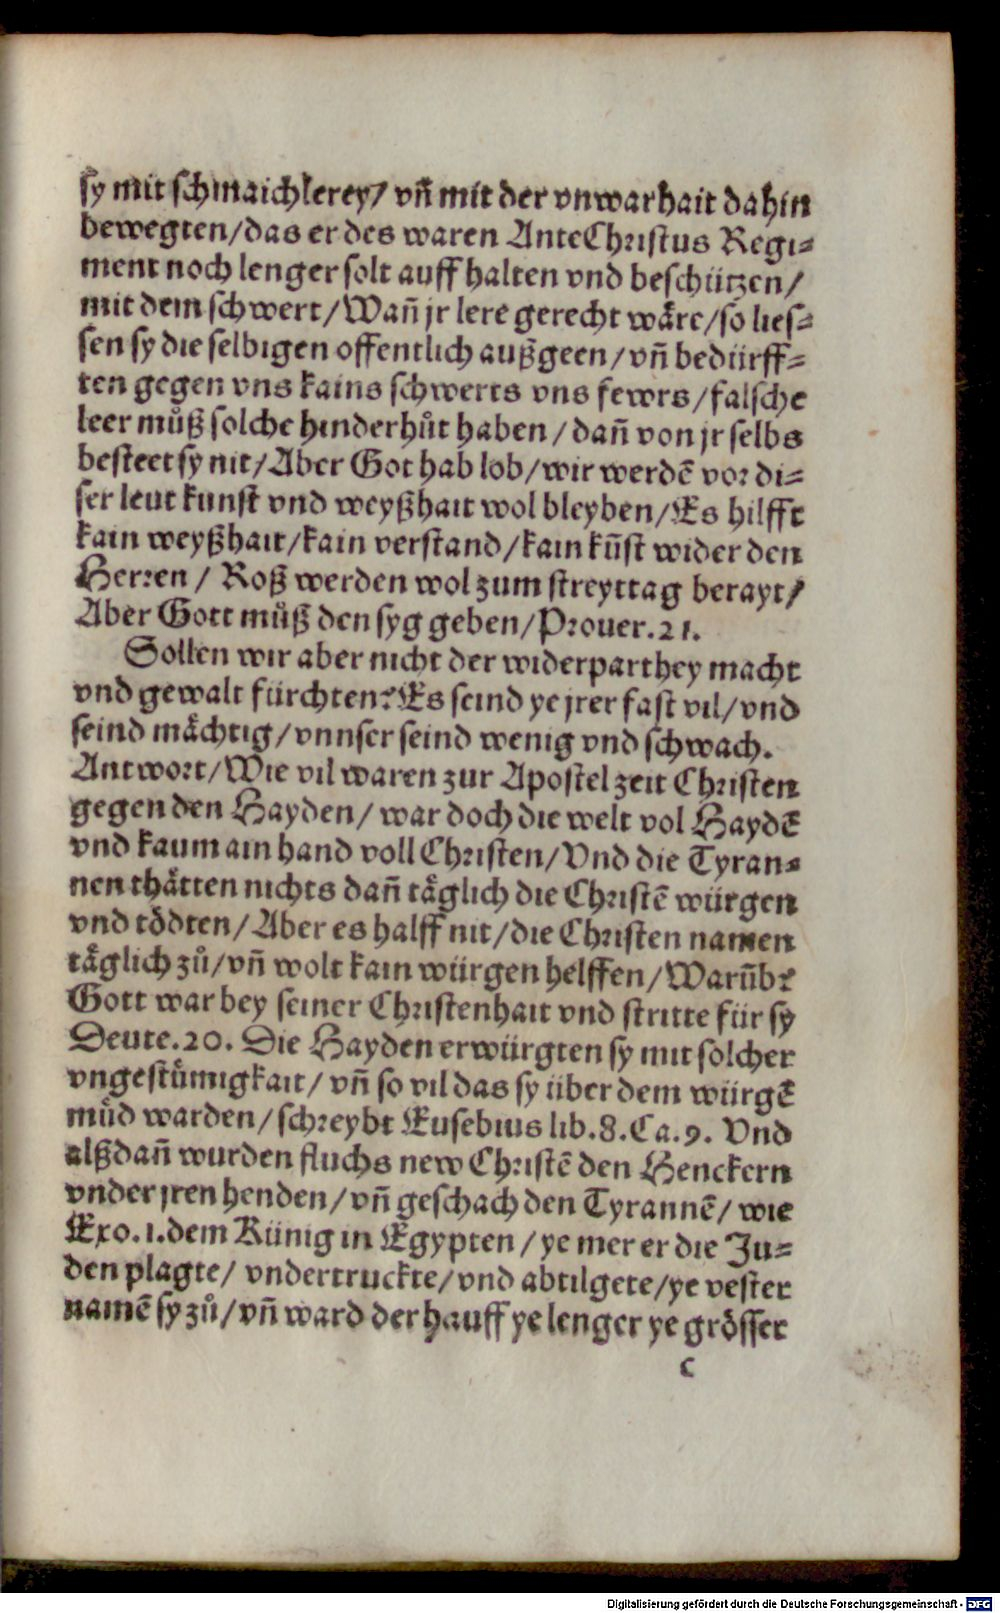 sy mit schmaichlerey/ vñ mit der vnwarhait dahin
bewegten/das er des waren AnteChristus Regi⸗
ment noch lenger solt auff halten vnd beschützen/
mit dem schwert/Wañ jr lere gerecht wåre/so lies⸗
sen sy die selbigen offentlich außgeen/vñ bedürff⸗
ten gegen vns kains schwerts vns fewrs/falsche
leer můß solche hinderhůt haben/dañ von jr selbs
besteet sy nit/Aber Got hab lob/wir werdẽ vor di⸗
ser leut kunst vnd weyßhait wol bleyben/Es hilfft
kain weyßhait/kain verstand/kain kũst wider den
Herren/ Roß werden wol zum streyttag berayt/
Aber Gott můß den syg geben/Prouer.21.
Sollen wir aber nicht der widerparthey macht
vnd gewalt fürchten? Es seind ye jrer fast vil/vnd
seind måchtig/vnnser seind wenig vnd schwach.
Antwort/Wie vil waren zur Apostel zeit Christen
gegen den Hayden/ war doch die welt vol Haydẽ
vnd kaum ain hand voll Christen/Vnd die Tyran⸗
nen thåtten nichts dañ tåglich die Christẽ würgen
vnd tödten/Aber es halff nit/die Christen namen
tåglich zů/vñ wolt kain würgen helffen/Warũb?
Gott war bey seiner Christenhait vnd stritte für sy
Deute.20. Die Hayden erwürgten sy mit solcher
vngestümigkait/ vñ so vil das sy über dem würgẽ
můd warden/schreybt Eusebius lib.8.Ca.9. Vnd
alßdañ wurden fluchs new Christẽ den Henckern
vnder jren henden/vñ geschach den Tyrannẽ/wie
Exo.1.dem Künig in Egypten/ye mer er die Ju⸗
den plagte/ vndertruckte/vnd abtilgete/ye vester
namẽ sy zů/vñ ward der hauff ye lenger ye grösser
c
Digitalisierung gefördert durch die Deutsche Forschungsgemeinschaft - DFG